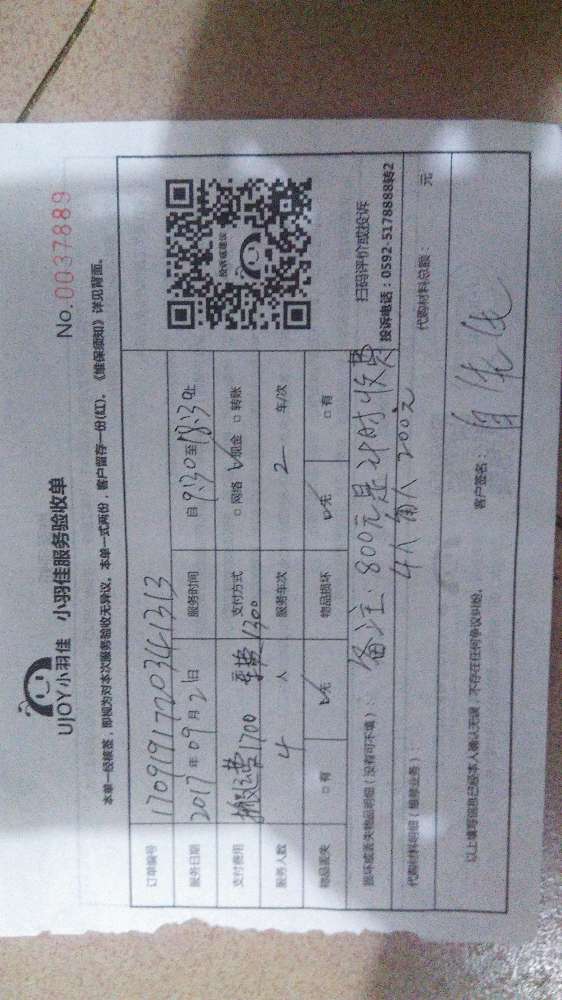 UJOY小羽佳 小羽佳服务验收单
No.0037889
本单一经核签，即视为对本次服务验收无异议。本单一式两份，客户留存一份(红)。《维保须知》详见背面。
订单编号 17091917203141313
服务日期 2017年09月21日 服务时间 自9:30至18:30止
支付费用 搬运费1700 车费1300 支付方式 □网络 ☑现金 □转账
服务人数 4 人 服务车次 2 车/次
物品丢失 □有 ☑无 物品损坏 ☑无 □有
投诉或建议
扫码评价或投诉
投诉电话：0592-5178888转2
损坏或丢失物品明细（没有可不填）： 备注：800元是计时收费
4人 每人 200元
代购材料明细（维修业务）： 代购材料总额： 元
以上填写信息已经本人确认无误，不存在任何争议纠纷。 客户签名：